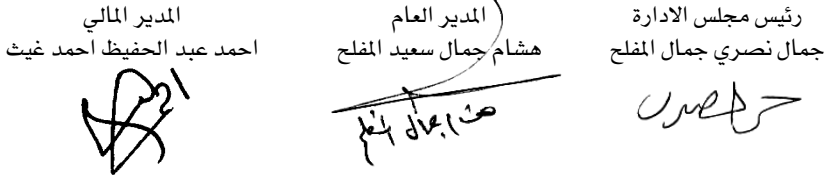 رئيس مجلس الادارة
جمال نصري جمال المفلح
المدير العام
هشام جمال سعيد المفلح
هشام جمال المفلح
المدير المالي
احمد عبد الحفيظ احمد غيث